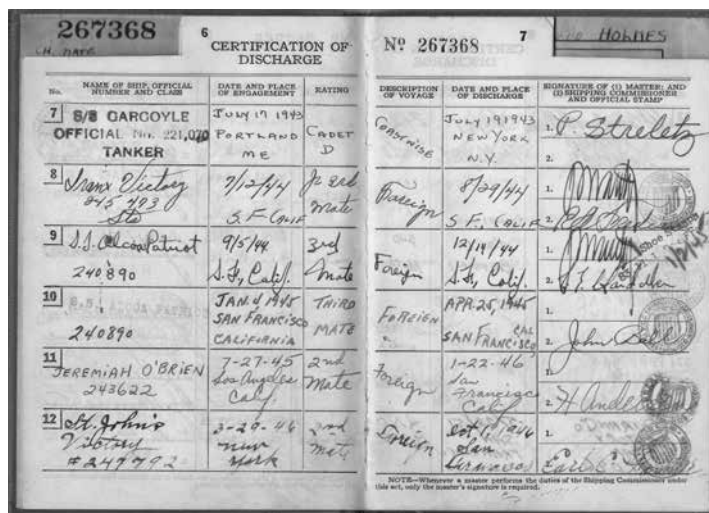 267368
CH. MATE
6
CERTIFICATION OF
DISCHARGE
No.
NAME OF SHIP, OFFICIAL
NUMBER AND CLASS
DATE AND PLACE
OF ENGAGEMENT
RATING
7
S/S GARGOYLE
OFFICIAL No. 221,070
TANKER
JULY 17 1943
PORTLAND
ME
CADET
D
8
Victory
245 473
7/12/44
S.F. CALIF
Jr 3rd
Mate
9
S.S. Alcoa Patriot
240890
9/5/44
S.F., Calif.
3rd
Mate
10
240890
JAN. 4, 1945
SAN FRANCISCO
CALIFORNIA
THIRD
MATE
11
JEREMIAH O'BRIEN
243622
7-27-45
Los Angeles
Calif
2nd
Mate
12
St. John's
Victory
#247792
3-29-46
New
York
2nd
Mate
Nº 267368
7
HOLMES
DESCRIPTION
OF VOYAGE
DATE AND PLACE
OF DISCHARGE
SIGNATURE OF (1) MASTER; AND
(2) SHIPPING COMMISSIONER
AND OFFICIAL STAMP
Coastwise
JULY 19 1943
NEW YORK
N.Y.
1. P. Streletz
2.
Foreign
8/29/44
S.F., CALIF
1.
2.
Foreign
12/19/44
S.F., Calif.
1.
2.
1/2/45
FOREIGN
APR. 25, 1945
SAN FRANCISCO, CAL
1.
2. John Bell
Foreign
1-22-46
San
Francisco
Calif
1.
2. H Ande
Foreign
Oct 1, 1946
San
1.
2. Earl
NOTE—Whenever a master performs the duties of the Shipping Commissioner under
this act, only the master's signature is required.